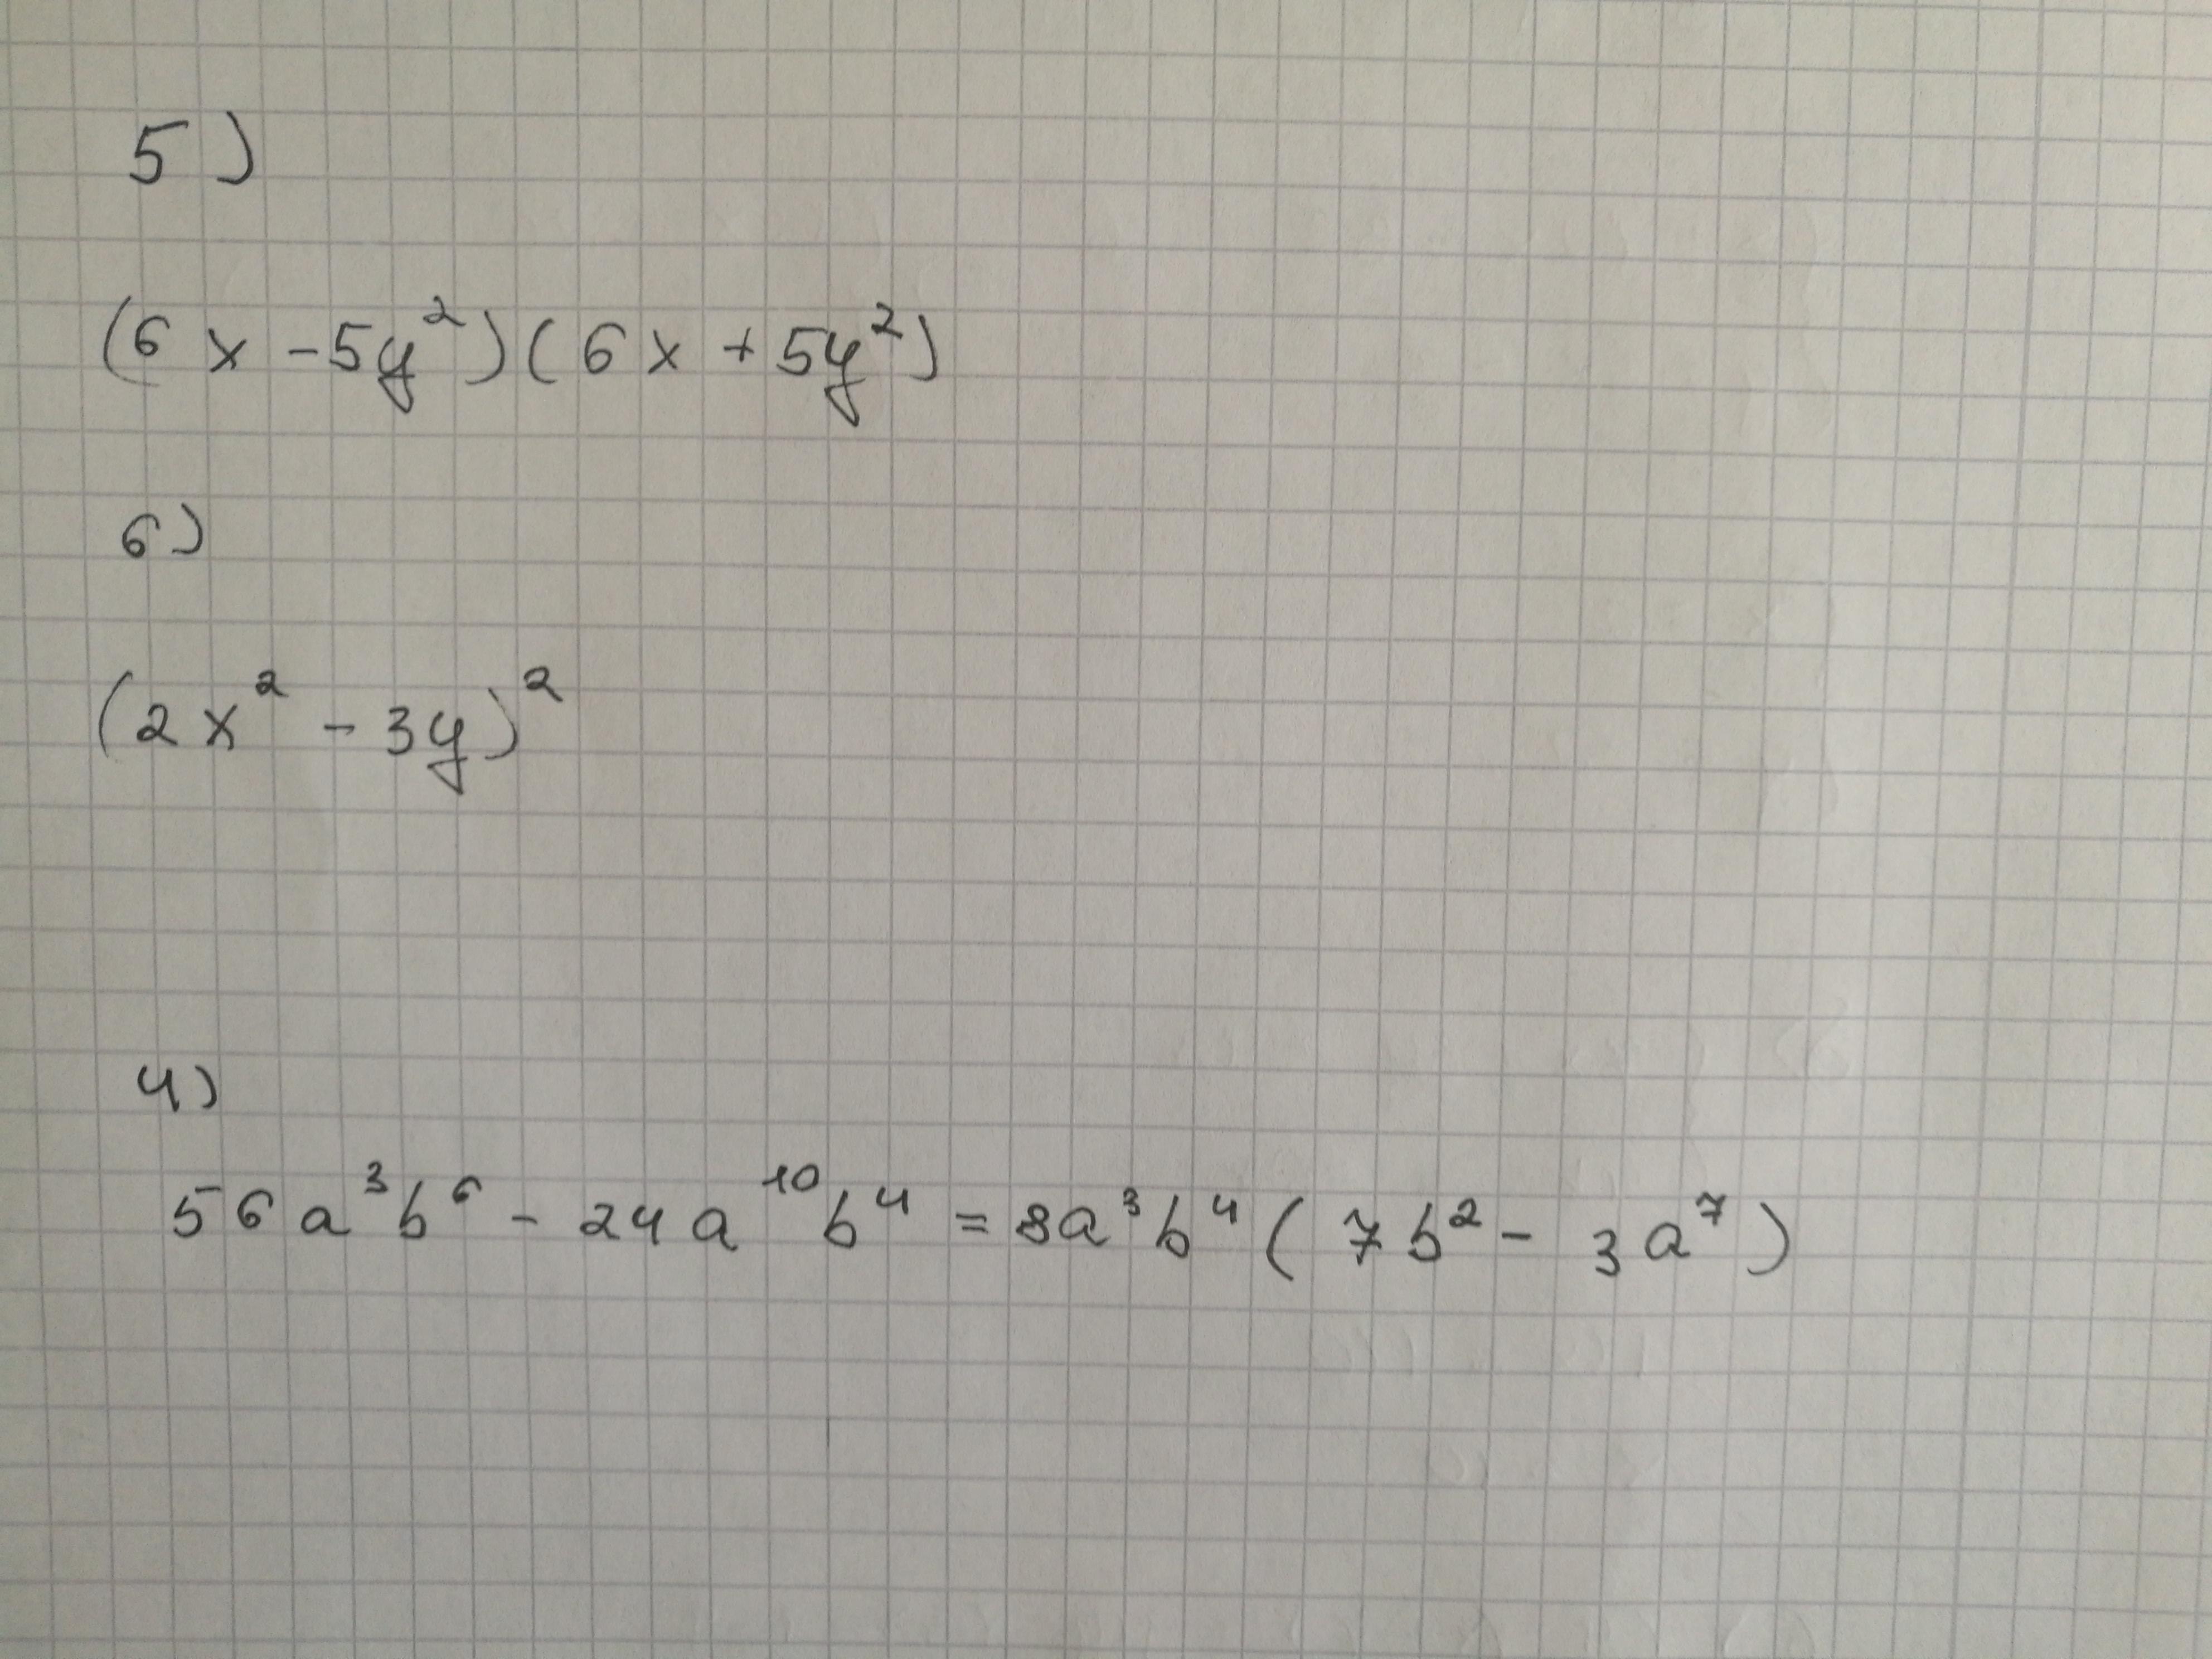 5)
(6x - 5y²)(6x + 5y²)
6)
(2x² - 3y)²
4)
56a³b⁶ - 24a¹⁰b⁴ = 8a³b⁴(7b² - 3a⁷)